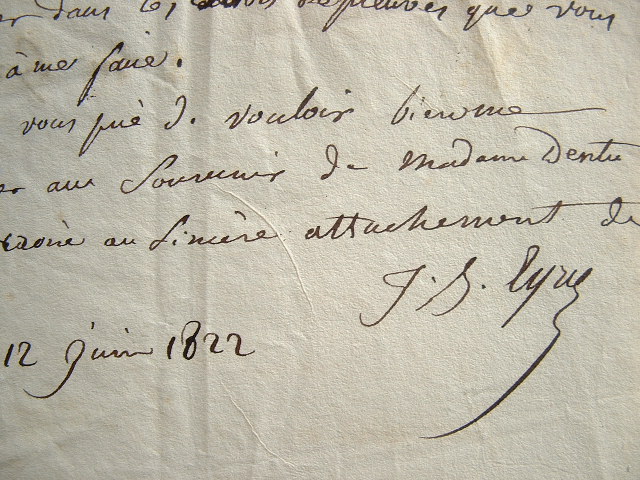 dans les que vous
à me faire.
vous prie de vouloir bien me
er au Souvenir de Madame Dentu
croire au Sincère attachement de
J. B. Eyriès
12 juin 1822